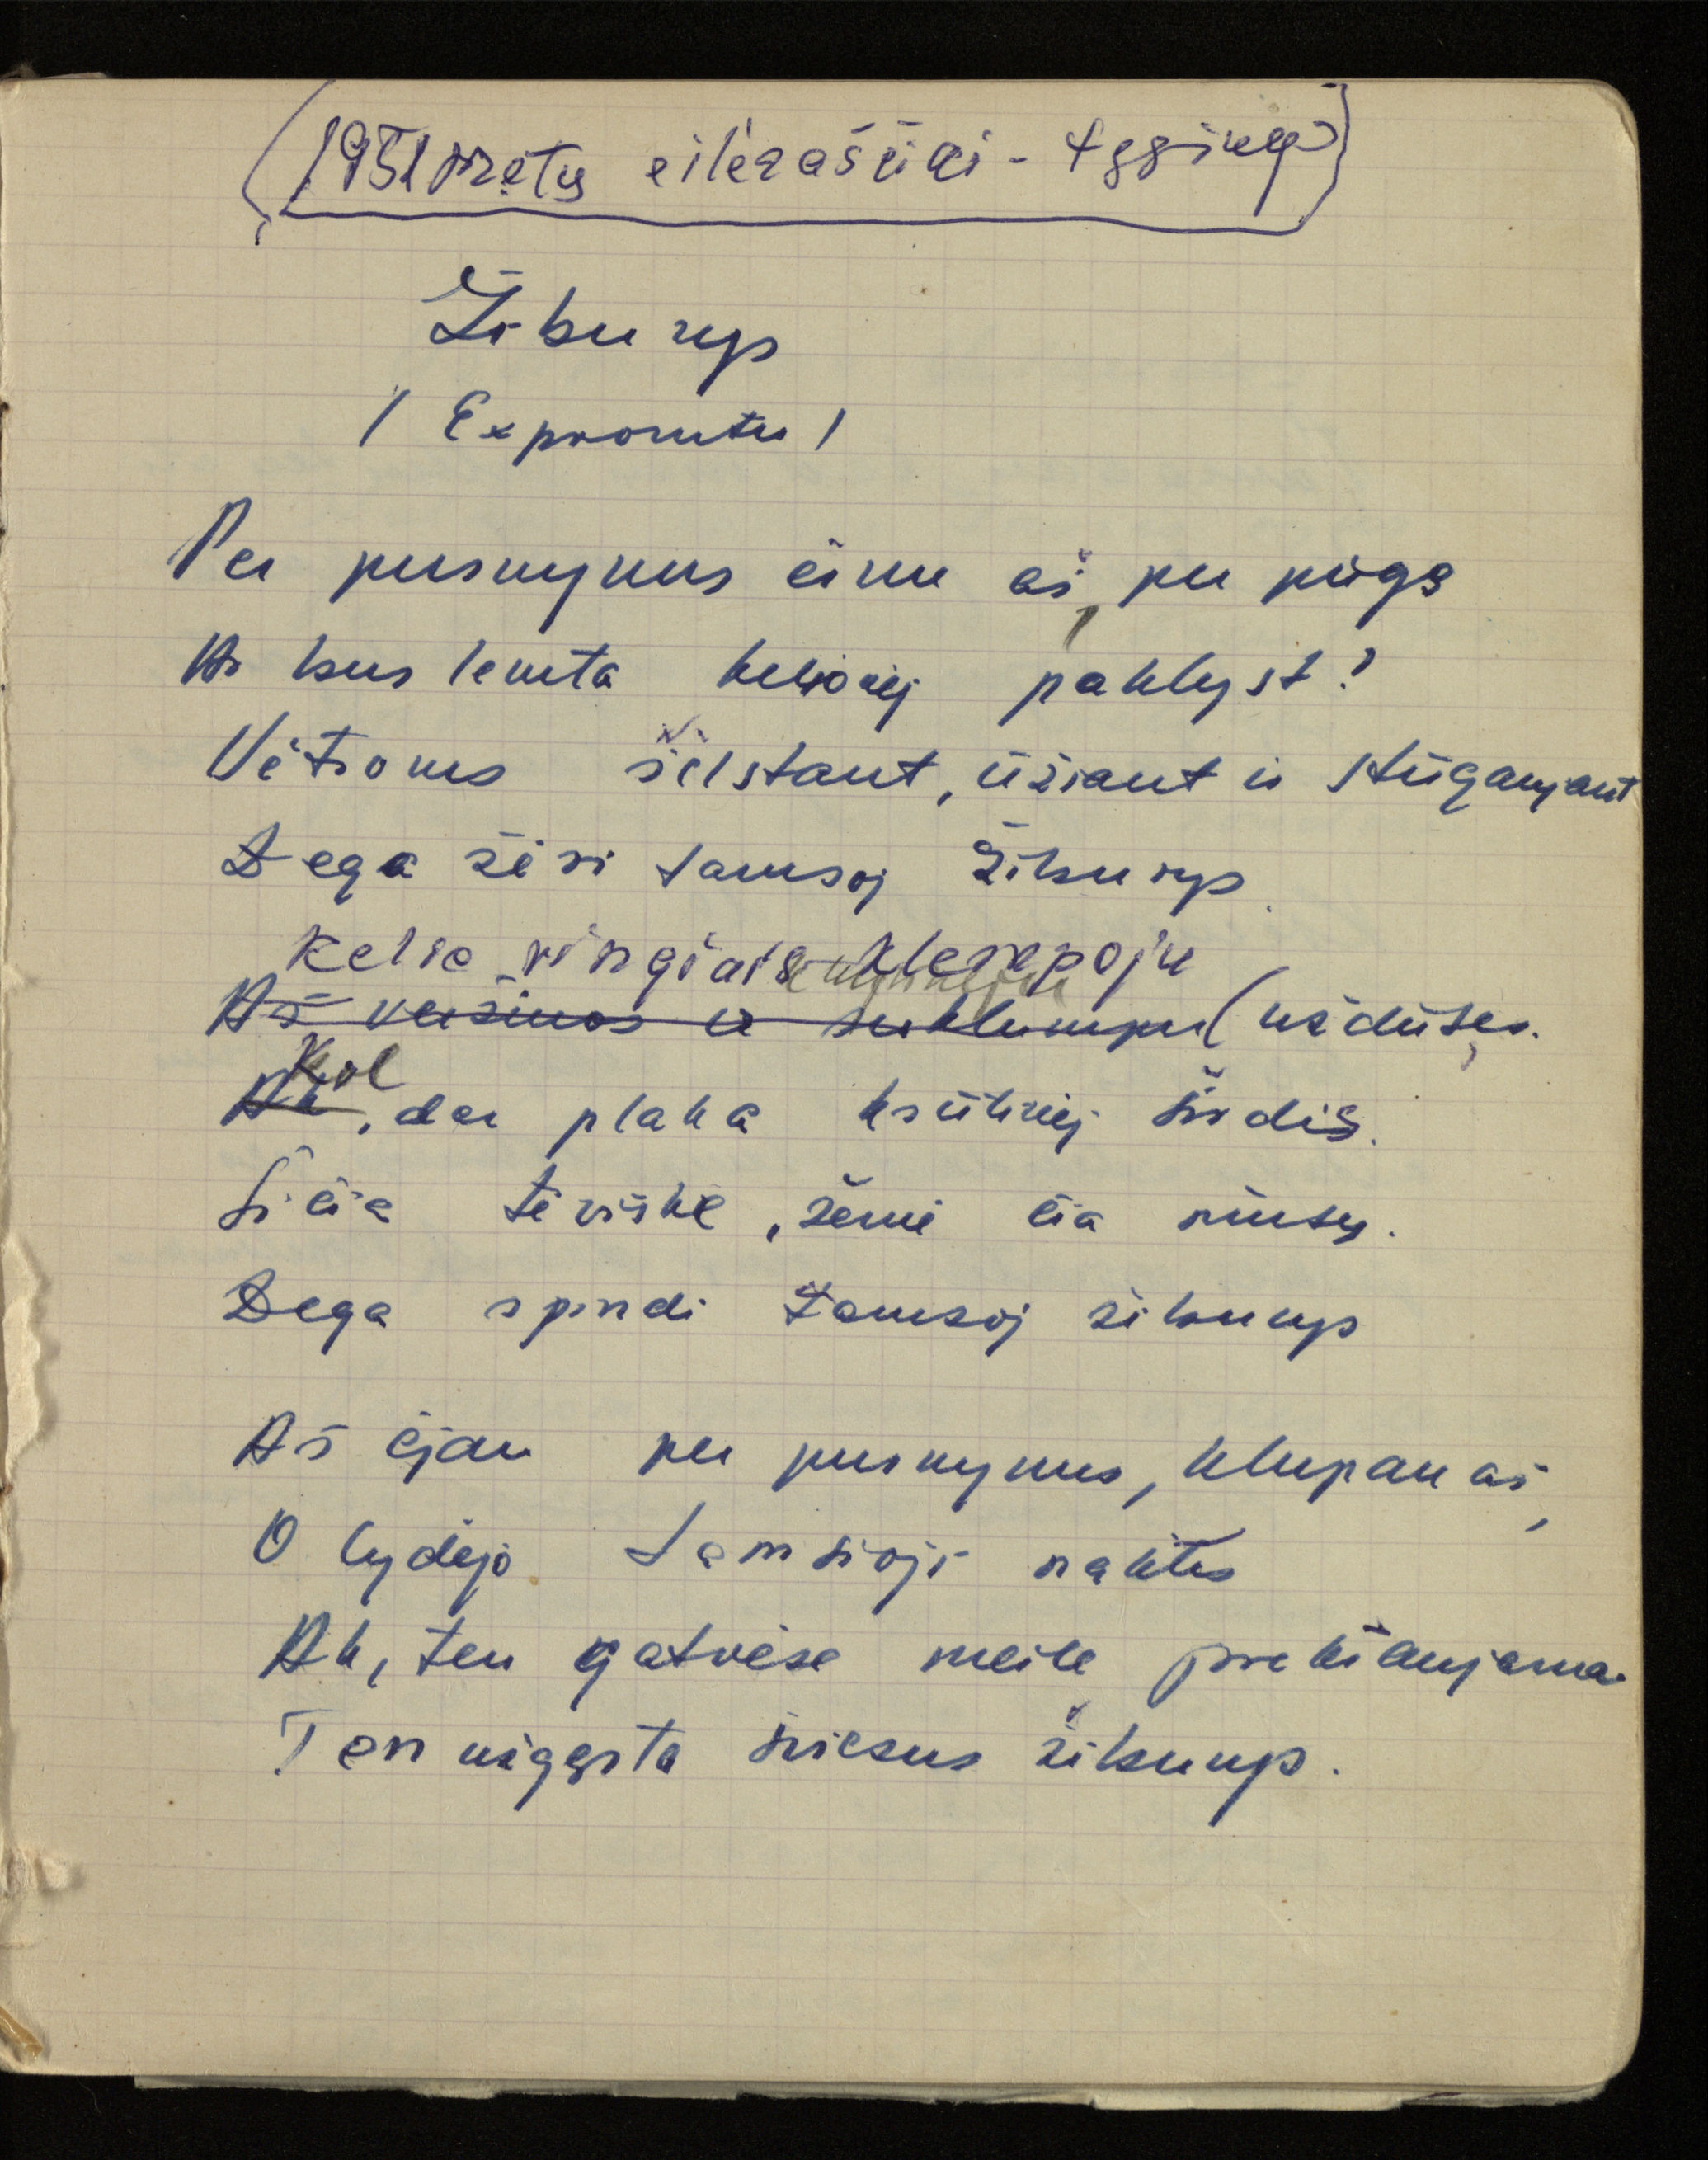 (1951 metų eilėraščiai - tęsinys)
Žiburys
/ Expromtu /
Per pusnynus einu aš, per pūgą
Ar bus lemta kelionėj paklyst?
Vėtroms šėlstant, ūžiant ir stūgaujant
Dega žėri tamsoj žiburys.
Kelio vingiais klerapoju
Aš veržiuos ir suklumpu (uždusęs.
Kol
Ak, dar plaka krūtinėj širdis.
Ši čia tėviškė, žemė čia mūsų.
Dega spindi tamsoj žiburys
Aš ėjau per pusnynus, klupau aš,
O lydėjo tamsioji naktis
Ak, ten gatvėse meilė prekiaujama.
Ten užgęsta šviesus žiburys.